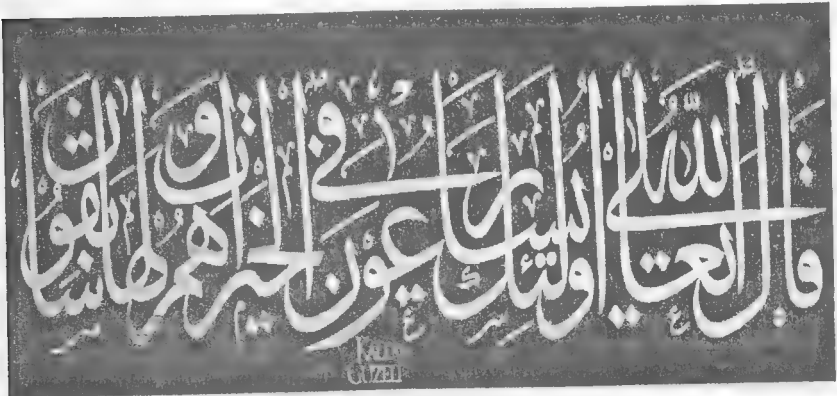 قال الله تعالى أولئك يسارعون في الخيرات وهم لها سابقون